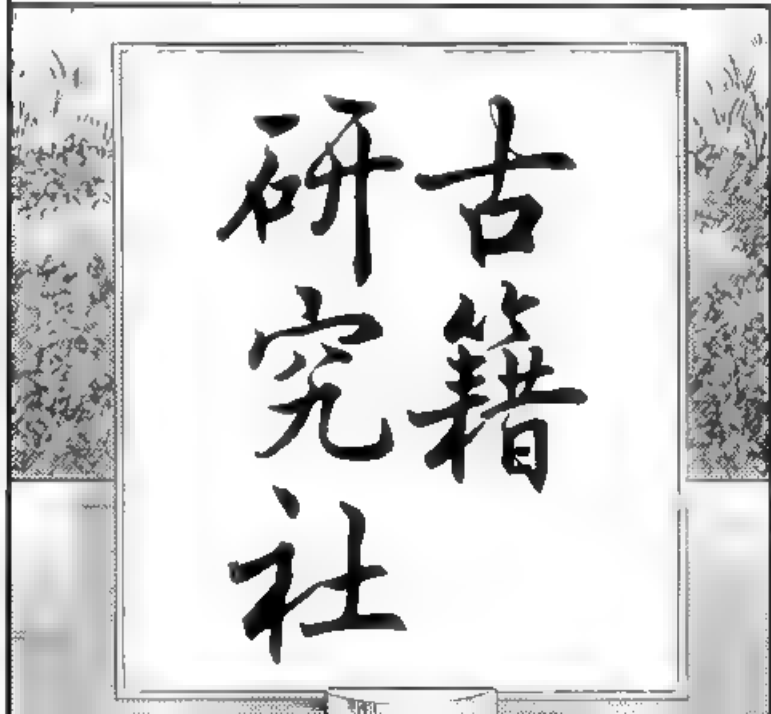 古籍
研究社